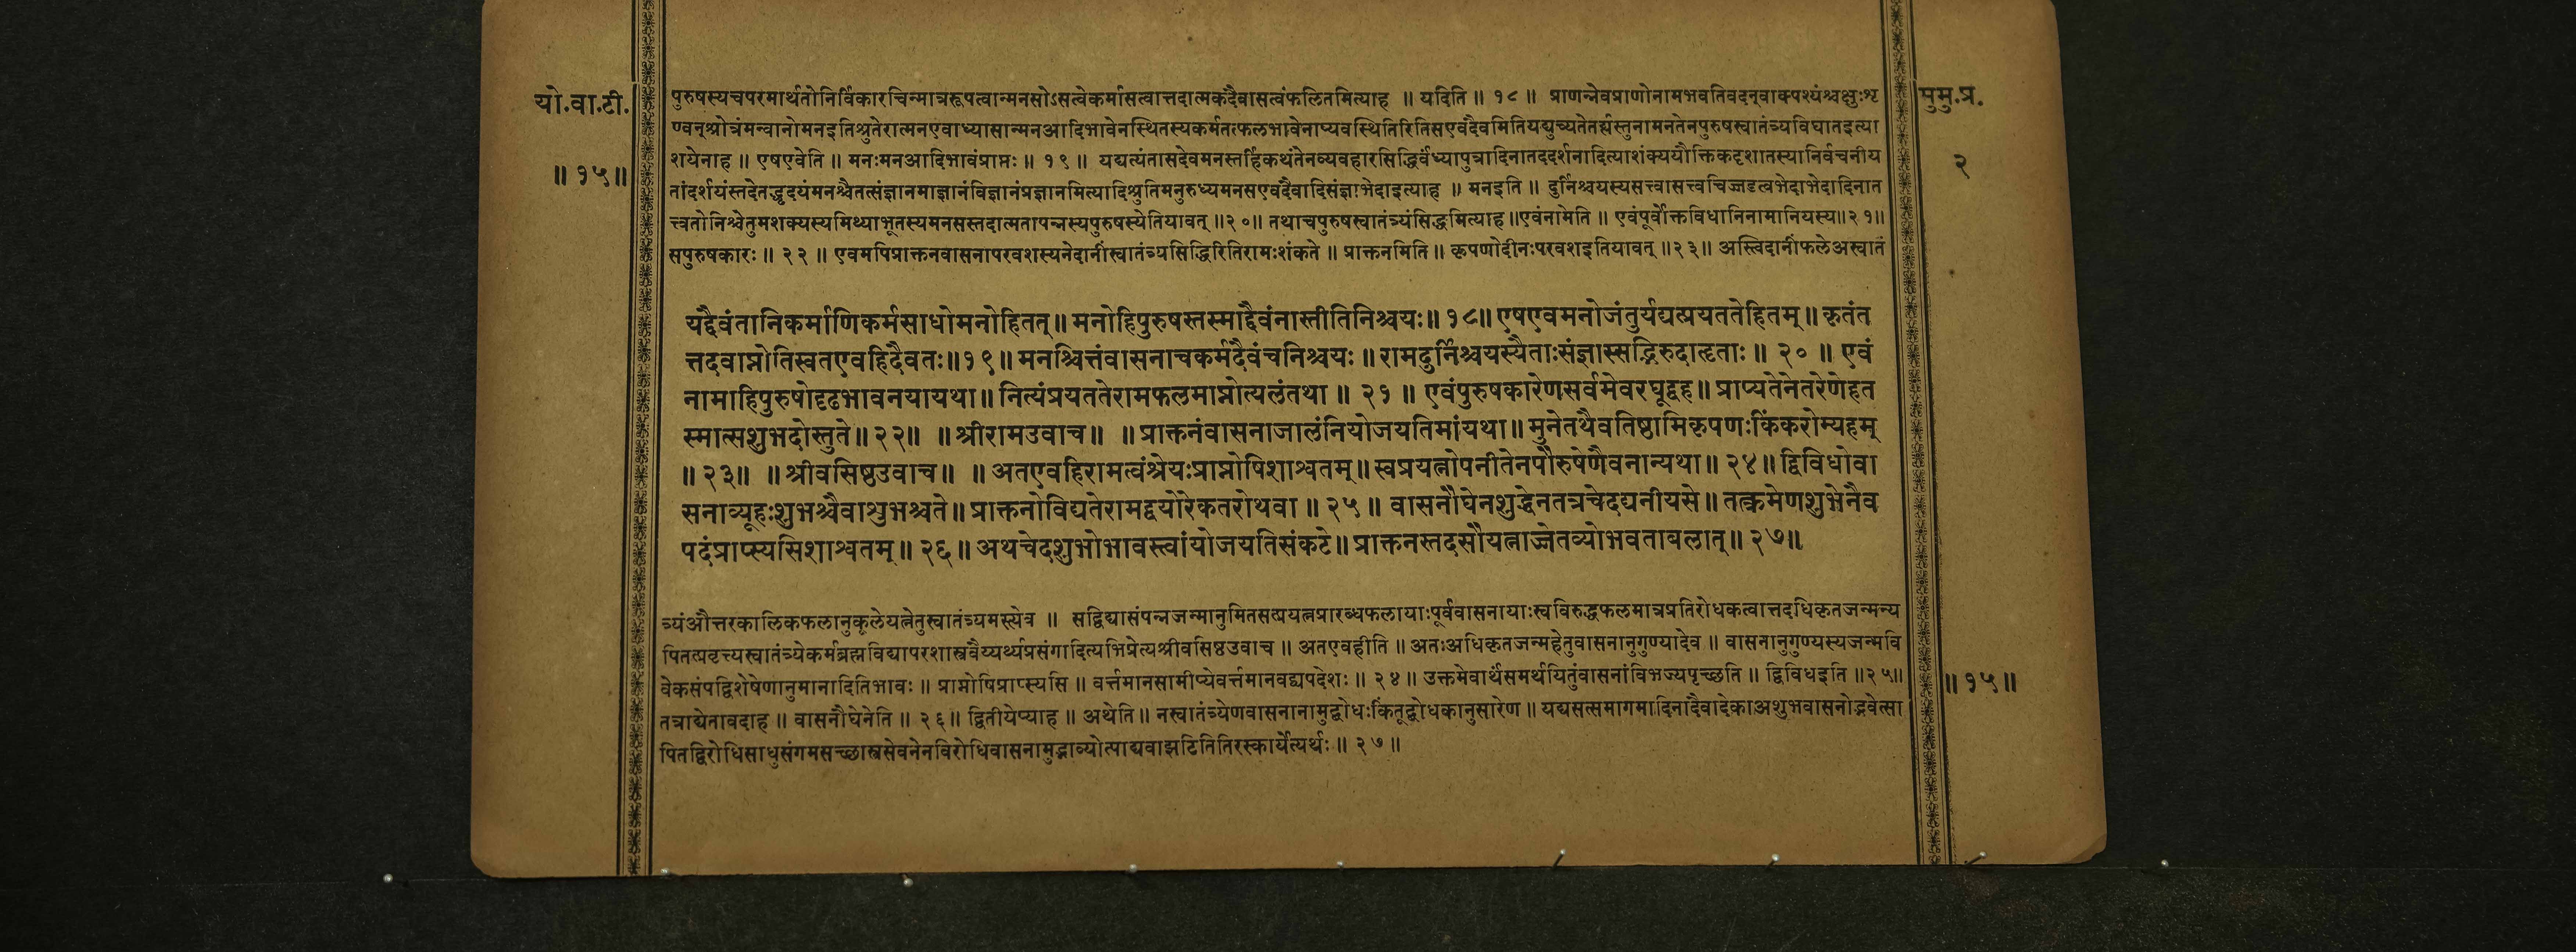 यो.वा.टी.
॥ १५॥
मुमु.प्र.
२
पुरुषस्यचपरमार्थतोनिर्विकारचिन्मात्ररूपत्वान्मनसोऽसत्वेकर्मासत्वात्तदात्मकदैवासत्वंफलितमित्याह ॥ यदिति ॥ १८ ॥ प्राणन्नेवप्राणोनामभवतिवदन्वाक्पश्यंश्चक्षुःशृ
ण्वन्श्रोत्रंमन्वानोमनइतिश्रुतेरात्मनएवाध्यासान्मनआदिभावेनस्थितस्यकर्मतत्फलभावेनाप्यवस्थितिरितिसएवदैवमितियद्युच्यतेतर्ह्यस्तुनामनतेनपुरुषस्वातंत्र्यविघातइत्या
शयेनाह ॥ एषएवेति ॥ मनःमनआदिभावंप्राप्तः ॥ १९ ॥ यद्यत्यंतासदेवमनस्तर्हिकथंतेनव्यवहारसिद्धिर्वंध्यापुत्रादिनातददर्शनादित्याशंक्ययौक्तिकदृशातस्यानिर्वचनीय
तांदर्शयंस्तदेतद्धृदयंमनश्चैतत्संज्ञानमाज्ञानंविज्ञानंप्रज्ञानमित्यादिश्रुतिमनुरुध्यमनसएवदैवादिसंज्ञाभेदाइत्याह ॥ मनइति ॥ दुर्निश्चयस्यसत्त्वासत्त्वचिज्जडत्वभेदाभेदादिनात
त्त्वतोनिश्चेतुमशक्यस्यमिथ्याभूतस्यमनसस्तदात्मतापन्नस्यपुरुषस्येतियावत् ॥२०॥ तथाचपुरुषस्वातंत्र्यंसिद्धमित्याह॥एवंनामेति ॥ एवंपूर्वोक्तविधानिनामानियस्य॥२१॥
सपुरुषकारः ॥ २२ ॥ एवमपिप्राक्तनवासनापरवशस्यनेदानींस्वातंत्र्यसिद्धिरितिरामःशंकते ॥ प्राक्तनमिति ॥ कृपणोदीनःपरवशइतियावत् ॥२३॥ अस्त्विदानींफलेअस्वातं
यद्दैवंतानिकर्माणिकर्मसाधोमनोहितत्॥ मनोहिपुरुषस्तस्माद्दैवंनास्तीतिनिश्चयः॥ १८॥ एषएवमनोजंतुर्यद्यत्प्रयततेहितम् ॥ कृतंत
त्तदवाप्नोतिस्वतएवहिदैवतः॥१९॥ मनश्चित्तंवासनाचकर्मदैवंचनिश्चयः ॥ रामदुर्निश्चयस्यैताःसंज्ञास्सद्भिरुदाहृताः ॥ २० ॥ एवं
नामाहिपुरुषोदृढभावनयायथा॥ नित्यंप्रयततेरामफलमाप्नोत्यलंतथा ॥ २१ ॥ एवंपुरुषकारेणसर्वमेवरघूद्वह॥ प्राप्यतेनेतरेणेहत
स्मात्सशुभदोस्तुते॥ २२॥ ॥ श्रीरामउवाच॥ ॥ प्राक्तनंवासनाजालंनियोजयतिमांयथा॥ मुनेतथैवतिष्ठामिकृपणःकिंकरोम्यहम्
॥ २३॥ ॥ श्रीवसिष्ठउवाच॥ ॥ अतएवहिरामत्वंश्रेयःप्राप्नोषिशाश्वतम्॥ स्वप्रयत्नोपनीतेनपौरुषेणैवनान्यथा॥ २४॥ द्विविधोवा
सनाव्यूहःशुभश्चैवाशुभश्चते॥ प्राक्तनोविद्यतेरामद्वयोरेकतरोथवा ॥ २५ ॥ वासनौघेनशुद्धेनतत्रचेदद्यनीयसे॥ तत्क्रमेणशुभेनैव
पदंप्राप्स्यसिशाश्वतम्॥ २६॥ अथचेदशुभोभावस्त्वांयोजयतिसंकटे॥ प्राक्तनस्तदसौयत्नाज्जेतव्योभवताबलात्॥ २७॥
त्र्यंऔत्तरकालिकफलानुकूलेयत्नेतुस्वातंत्र्यमस्त्येव ॥ सद्विद्यासंपन्नजन्मानुमितसत्प्रयत्नप्रारब्धफलायाःपूर्ववासनायाःस्वविरुद्धफलमात्रप्रतिरोधकत्वात्तदधिकृतजन्मन्य
पितत्प्रवृत्त्यस्वातंत्र्येकर्मब्रह्मविद्यापरशास्त्रवैय्यर्थ्यप्रसंगादित्यभिप्रेत्यश्रीवसिष्ठउवाच ॥ अतएवहीति ॥ अतःअधिकृतजन्महेतुवासनानुगुण्यादेव ॥ वासनानुगुण्यस्यजन्मवि
वेकसंपद्विशेषेणानुमानादितिभावः ॥ प्राप्नोषिप्राप्स्यसि ॥ वर्त्तमानसामीप्येवर्त्तमानवद्व्यपदेशः ॥ २४ ॥ उक्तमेवार्थंसमर्थयितुंवासनांविभज्यपृच्छति ॥ द्विविधइति ॥२५॥
॥ १५॥
तत्राद्येतावदाह ॥ वासनौघेनेति ॥ २६॥ द्वितीयेप्याह ॥ अथेति ॥ नस्वातंत्र्येणवासनानामुद्बोधःकिंतूद्बोधकानुसारेण ॥ यद्यसत्समागमादिनादैवादेकाअशुभवासनोद्भवेत्सा
पितद्विरोधिसाधुसंगमसच्छास्त्रसेवनेनविरोधिवासनामुद्भाव्योत्पाद्यवाझटितितिरस्कार्येत्यर्थः ॥ २७ ॥